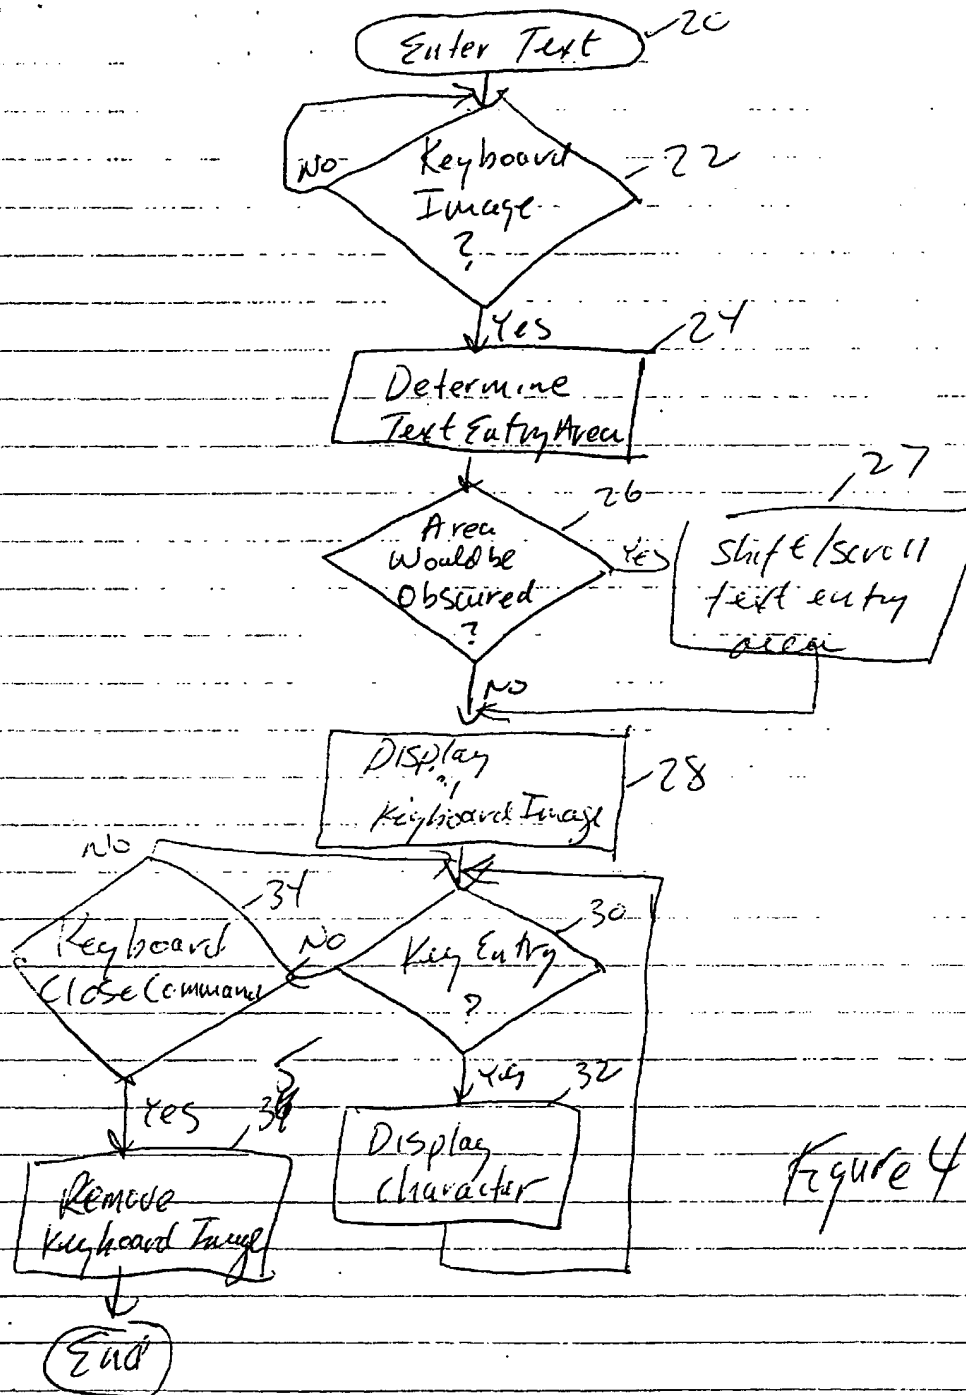 Enter Text
20
Keyboard
Image
?
22
No
Yes
24
Determine
Text Entry Area
26
Area
Would be
Obscured
?
Yes
27
Shift/scroll
text entry
area
No
Display
Keyboard Image
28
No
34
Keyboard
Close Command
No
30
Key Entry
?
Yes
32
Display
character
Yes
Remove
Keyboard Image
End
Figure 4